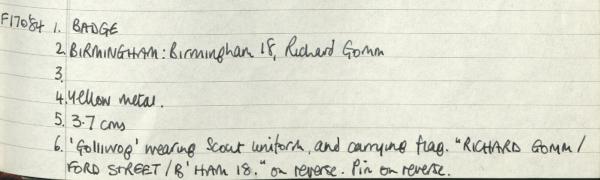 F17084 1. BADGE
2. BIRMINGHAM: Birmingham 18, Richard Gomm
3.
4. Yellow metal.
5. 3.7 cms
6. 'Golliwog' wearing Scout uniform, and carrying flag. "RICHARD GOMM /
FORD STREET / B'HAM 18." on reverse. Pin on reverse.